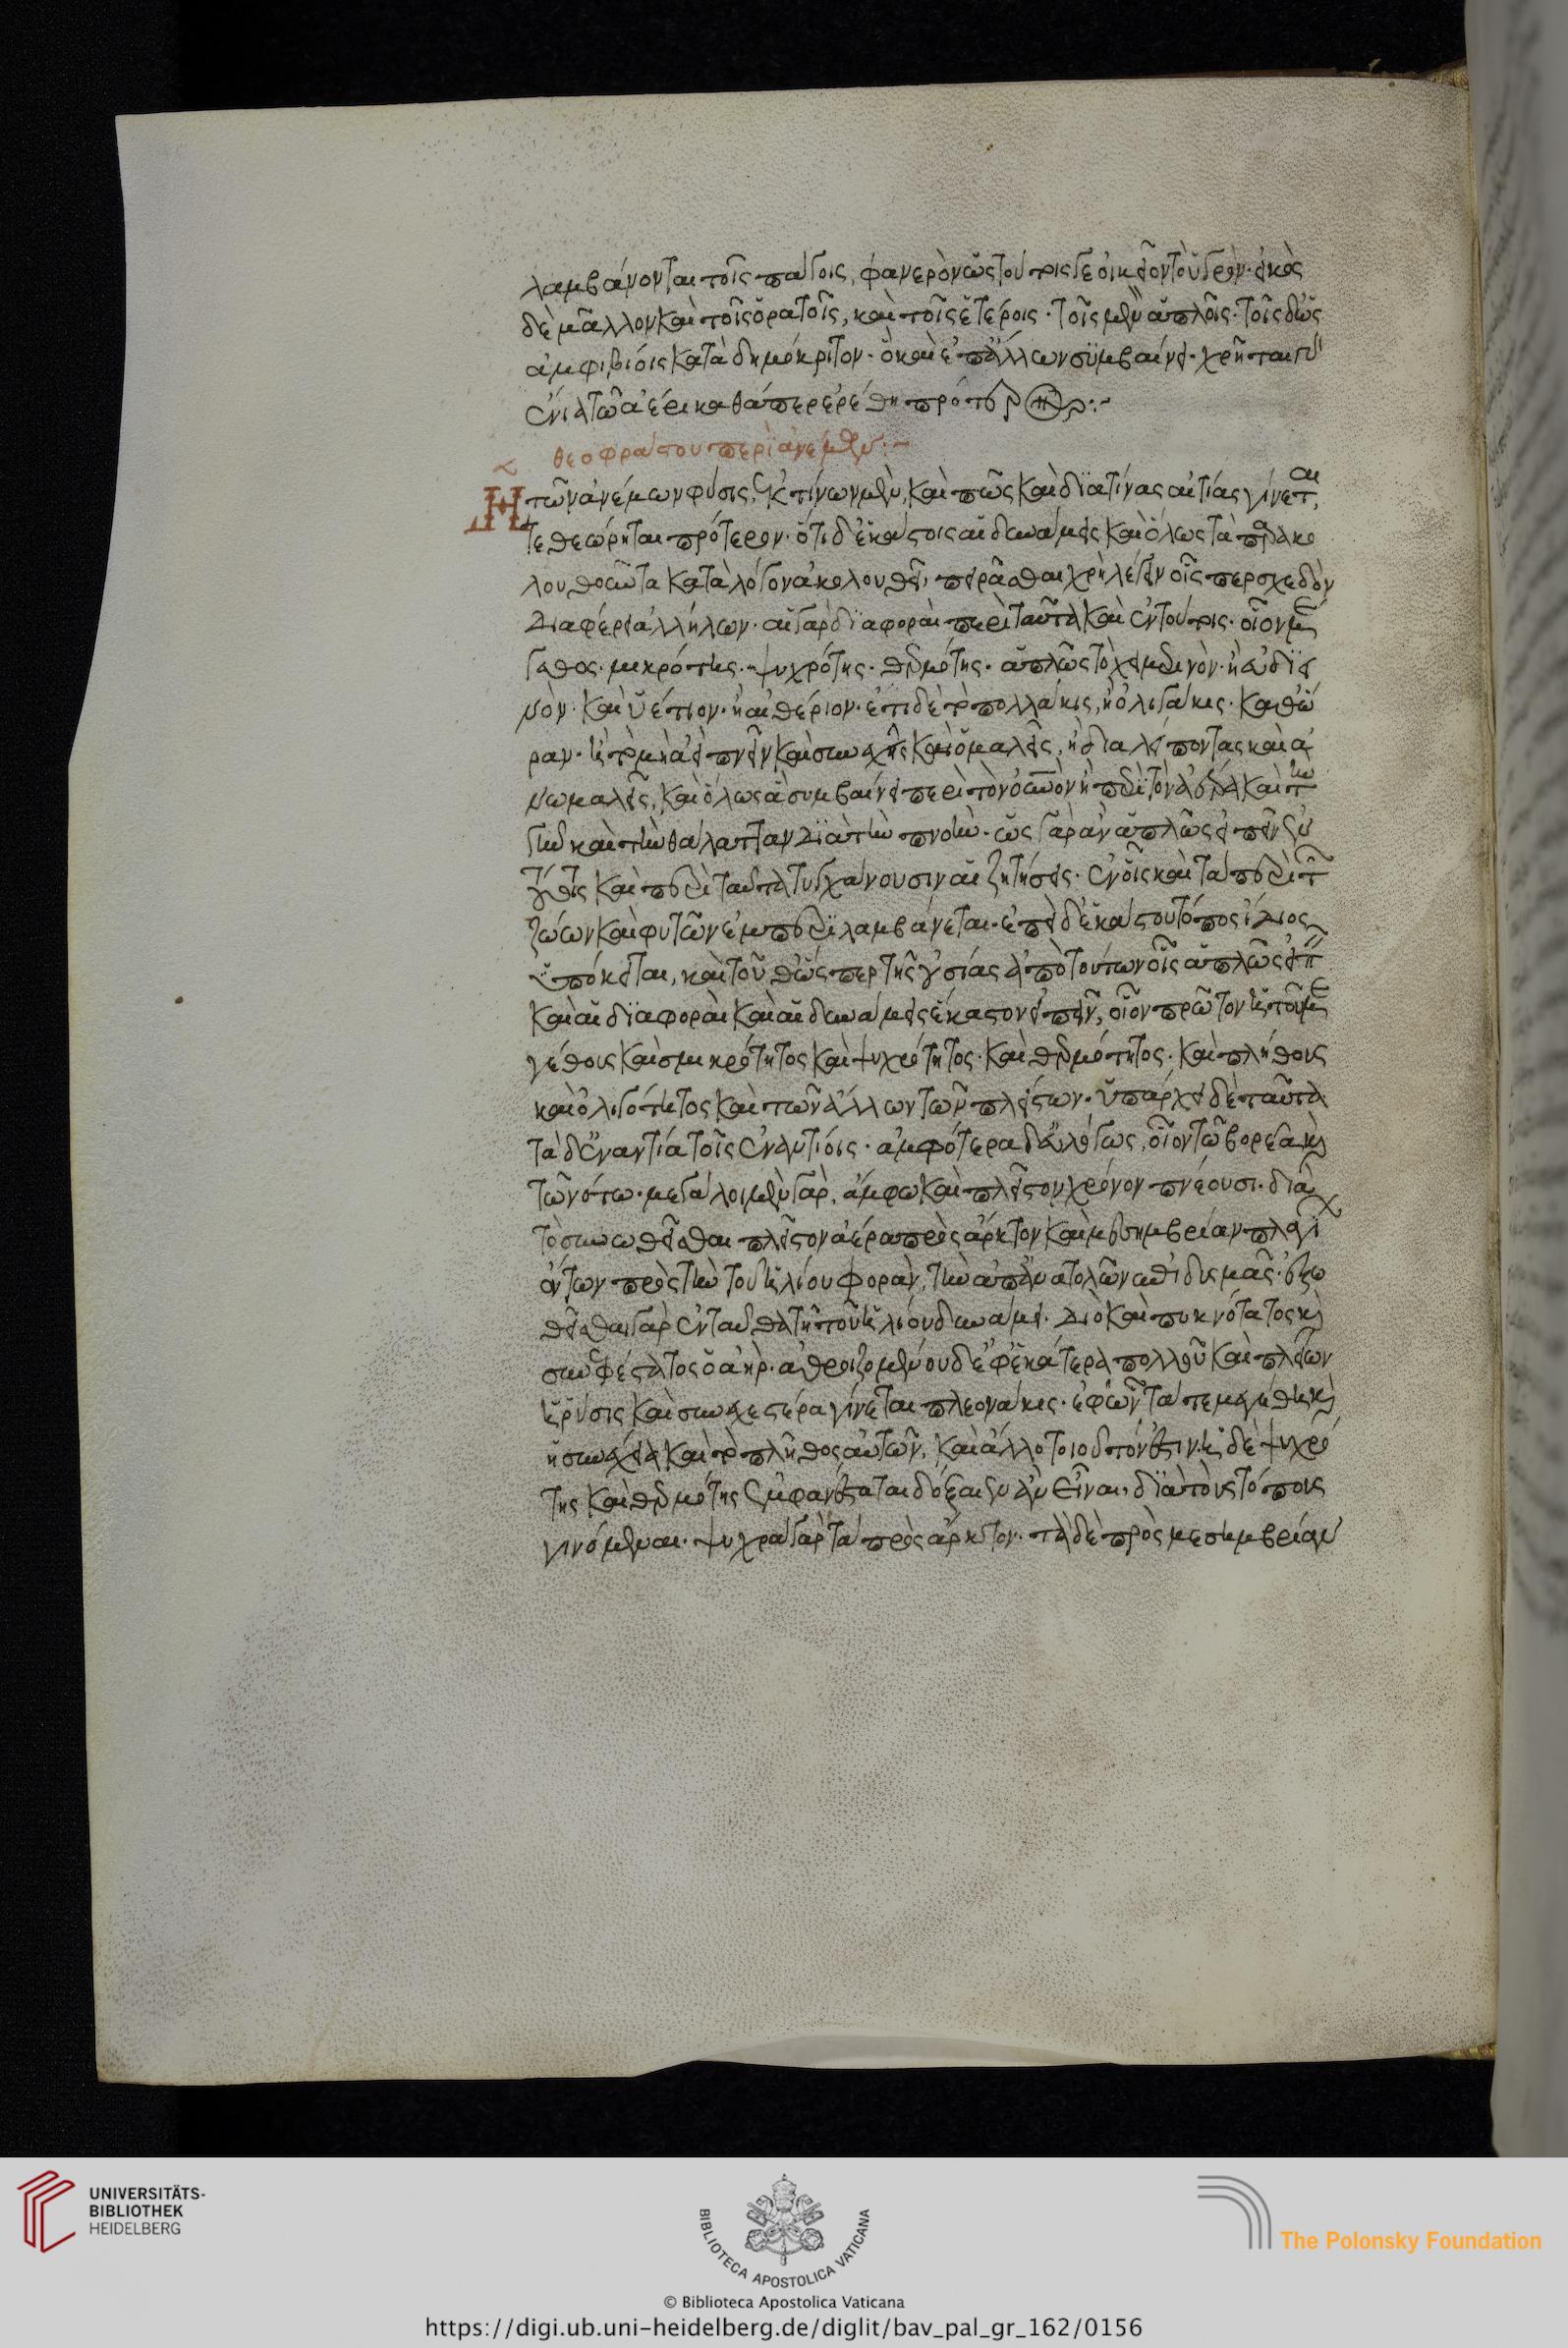 λαμβάνονται τοῖς πάγοις, φανερὸν ὡς τούτοις γε οἰκεῖον τὸ ὑγρόν. εἰκὸς
δὲ μᾶλλον καὶ τοῖς ὁρατοῖς, καὶ τοῖς ἑτέροις. τοῖς μὲν ἁπλοῖς. τοῖς δ' ὡς
ἀμφιβίοις κατὰ δημόκριτον. ὃ καὶ ἐπ' ἄλλων συμβαίνει. χρῆται
ἔνια τῶ ἀέρι καθάπερ ἐρέθη πρότερον :~
θεοφράστου περὶ ἀνέμων :~
Ἡ τῶν ἀνέμων φύσις, ἐκ τίνων μὲν, καὶ πῶς καὶ διὰ τίνας αἰτίας γίνεται,
τεθεώρηται πρότερον. ὅτι δ' ἑκάστοις αἱ δυνάμεις καὶ ὅλως τὰ παρακο
λουθοῦντα κατὰ λόγον ἀκολουθεῖ, πειρᾶσθαι χρὴ λέγειν οἷς περ σχεδὸν
διαφέρει ἀλλήλων. αἱ γὰρ διαφοραὶ περὶ ταῦτα καὶ ἐν τούτοις. οἷον μέ
γαθος. μικρότης. ψυχρότης. θερμότης. ἁπλῶς τὸ χειμερινὸν. ἢ εὐδιει
νὸν. καὶ ὑέτιον. ἢ αἰθέριον. ἔτι δὲ τὸ πολλάκις, ἢ ὀλιγάκις. καθ' ὥ
ραν. ἢ τὸ μὴ ἀεὶ πνεῖν καὶ συνεχεῖς καὶ ὁμαλεῖς, ἢ διαλείποντας καὶ ἀ
νωμαλεῖς, καὶ ὅλως ἃ συμβαίνει περὶ τὸν οὐνὸν ἢ περὶ τὸν ἀέρα καὶ τὴν
γῆν καὶ τὴν θάλατταν διὰ τὴν πνοὴν. ὡς γὰρ ἂν ἁπλῶς εἰπεῖν ἐν
τοῖς καὶ περὶ ταῦτα τυγχάνουσιν αἱ ζητήσεις. ἐν οἷς καὶ τὰ περὶ τῶν
ζώων καὶ φυτῶν ἐμπεριλαμβάνεται. ἐπεὶ δ' ἑκάστου τόπος ἴδιος
ὑπόκειται, καὶ τοῦθ' ὥσπερ τῆς οὐσίας ἀπὸ τούτων οἷς ἁπλῶς εἰπεῖν
καὶ αἱ διαφοραὶ καὶ αἱ δυνάμεις ἕκαστον εἰπεῖν, οἷον πρῶτον ἢ τοῦ με
γέθους καὶ σμικρότητος καὶ ψυχρότητος. καὶ θερμότητος. καὶ πλήθους
καὶ ὀλιγότητος καὶ τῶν ἄλλων τῶν πλείστων. ὑπάρχει δὲ ταῦτα
τὰ δ' ἐναντία τοῖς ἐναντίοις. ἀμφότερα δ' εὐλόγως, οἷον τῶ βορέα καὶ
τῶ νότω. μεγάλοι μὲν γὰρ, ἄμφω καὶ πλεῖστον χρόνον πνέουσι. διὰ
τὸ συνωθεῖσθαι πλεῖστον ἀέρα πρὸς ἄρκτον καὶ μεσημβρίαν πλαγί
ων ὄντων πρὸς τὴν τοῦ ἡλίου φορὰν, τὴν ἀπ' ἀνατολῶν ἐπὶ δυσμάς. ἐξω
θεῖσθαι γὰρ ἐνταῦθα τῇ τοῦ ἡλίου δυνάμει. διὸ καὶ πυκνότατος καὶ
συννεφέστατος ὁ ἀήρ. ἀθροιζομένου δ' ἐφ' ἑκάτερα πολλοῦ καὶ πλείων
ἡ ῥύσις καὶ συνεχεστέρα γίνεται πλεονάκις. ἐφ' ὧν τά τε μεγέθη καὶ
ἡ συνέχεια καὶ τὸ πλῆθος αὐτῶν, καὶ ἄλλο τοιοῦτόν ἐστιν. ἡ δὲ ψυχρό
της καὶ θερμότης ἐμφανέσταται δόξαιεν ἂν εἶναι. διὰ τοὺς τόπους
γινόμεναι. ψυχρὰ γὰρ τὰ πρὸς ἄρκτον. τὰ δὲ πρὸς μεσημβρίαν
UNIVERSITÄTS-
BIBLIOTHEK
HEIDELBERG
BIBLIOTECA APOSTOLICA VATICANA
The Polonsky Foundation
© Biblioteca Apostolica Vaticana
https://digi.ub.uni-heidelberg.de/diglit/bav_pal_gr_162/0156